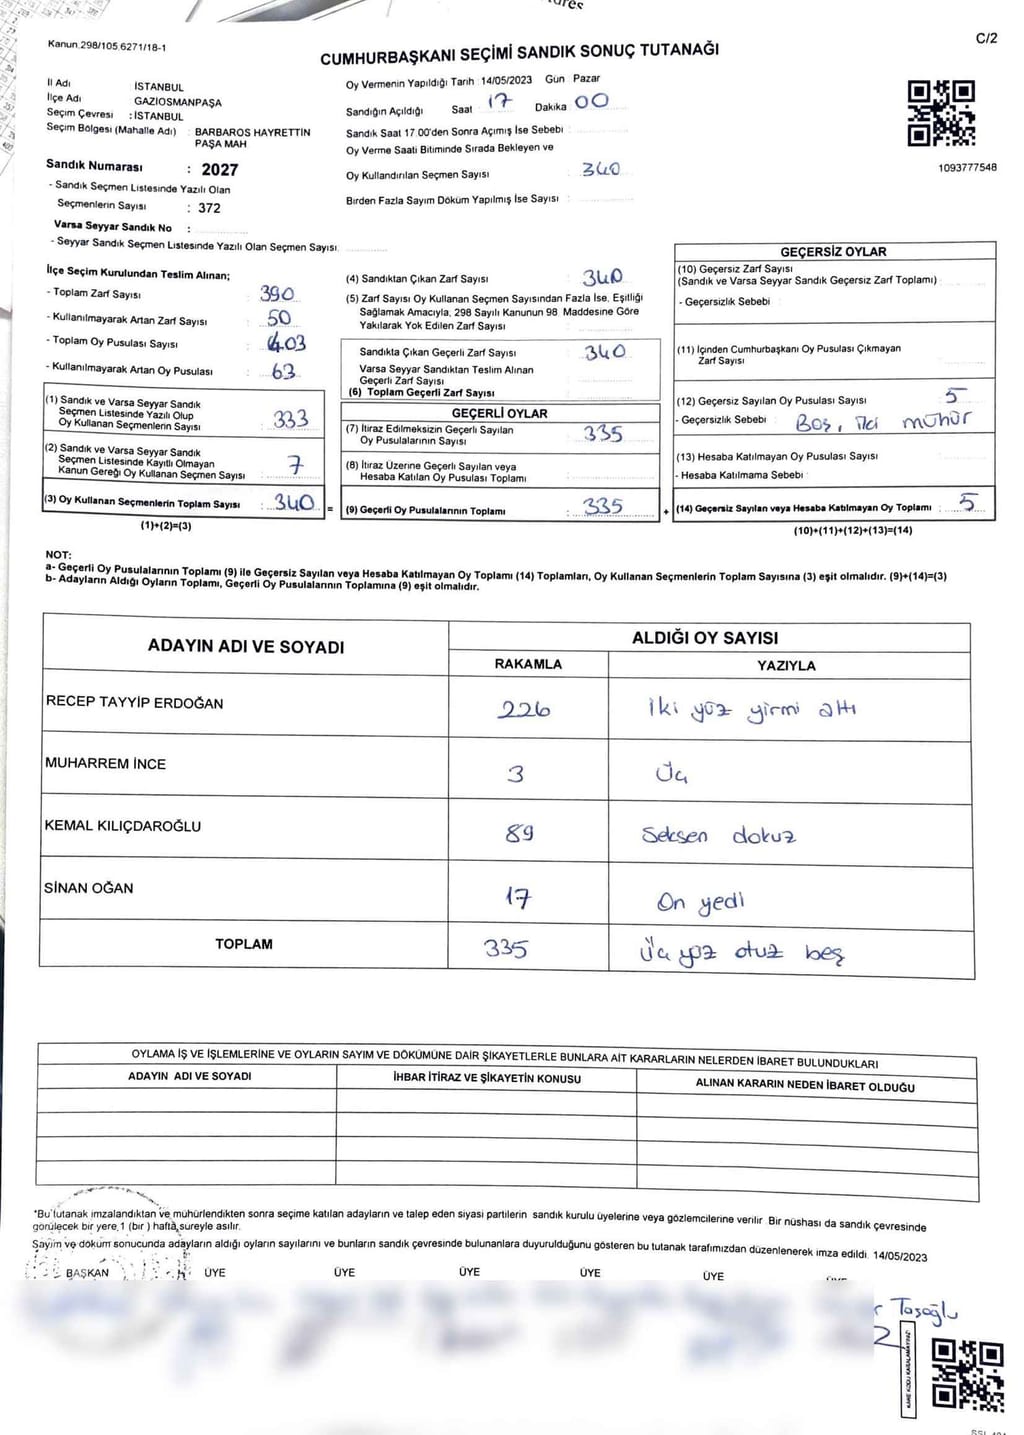 Kanun.298/105.6271/18-1
C/2
CUMHURBAŞKANI SEÇİMİ SANDIK SONUÇ TUTANAĞI
İl Adı : İSTANBUL
İlçe Adı : GAZİOSMANPAŞA
Seçim Çevresi : İSTANBUL
Seçim Bölgesi (Mahalle Adı) : BARBAROS HAYRETTİN
PAŞA MAH
Sandık Numarası : 2027
- Sandık Seçmen Listesinde Yazılı Olan
Seçmenlerin Sayısı : 372
Varsa Seyyar Sandık No :
- Seyyar Sandık Seçmen Listesinde Yazılı Olan Seçmen Sayısı:
Oy Vermenin Yapıldığı Tarih : 14/05/2023 Gün : Pazar
Sandığın Açıldığı Saat : 17 Dakika : 00
Sandık Saat 17.00'den Sonra Açımış İse Sebebi :
Oy Verme Saati Bitiminde Sırada Bekleyen ve
Oy Kullandırılan Seçmen Sayısı : 340
Birden Fazla Sayım Döküm Yapılmış İse Sayısı :
1093777548
İlçe Seçim Kurulundan Teslim Alınan;
- Toplam Zarf Sayısı : 390
- Kullanılmayarak Artan Zarf Sayısı : 50
- Toplam Oy Pusulası Sayısı : 403
- Kullanılmayarak Artan Oy Pusulası : 63
(1) Sandık ve Varsa Seyyar Sandık
Seçmen Listesinde Yazılı Olup
Oy Kullanan Seçmenlerin Sayısı : 333
(2) Sandık ve Varsa Seyyar Sandık
Seçmen Listesinde Kayıtlı Olmayan
Kanun Gereği Oy Kullanan Seçmen Sayısı : 7
(3) Oy Kullanan Seçmenlerin Toplam Sayısı : 340 =
(1)+(2)=(3)
(4) Sandıktan Çıkan Zarf Sayısı : 340
(5) Zarf Sayısı Oy Kullanan Seçmen Sayısından Fazla İse, Eşitliği
Sağlamak Amacıyla, 298 Sayılı Kanunun 98. Maddesine Göre
Yakılarak Yok Edilen Zarf Sayısı :
Sandıkta Çıkan Geçerli Zarf Sayısı : 340
Varsa Seyyar Sandıktan Teslim Alınan
Geçerli Zarf Sayısı :
(6) Toplam Geçerli Zarf Sayısı :
GEÇERLİ OYLAR
(7) İtiraz Edilmeksizin Geçerli Sayılan
Oy Pusulalarının Sayısı : 335
(8) İtiraz Üzerine Geçerli Sayılan veya
Hesaba Katılan Oy Pusulası Toplamı :
(9) Geçerli Oy Pusulalarının Toplamı : 335 +
GEÇERSİZ OYLAR
(10) Geçersiz Zarf Sayısı
(Sandık ve Varsa Seyyar Sandık Geçersiz Zarf Toplamı) :
- Geçersizlik Sebebi :
(11) İçinden Cumhurbaşkanı Oy Pusulası Çıkmayan
Zarf Sayısı :
(12) Geçersiz Sayılan Oy Pusulası Sayısı : 5
- Geçersizlik Sebebi : Boş, iki mühür
(13) Hesaba Katılmayan Oy Pusulası Sayısı :
- Hesaba Katılmama Sebebi :
(14) Geçersiz Sayılan veya Hesaba Katılmayan Oy Toplamı : 5
(10)+(11)+(12)+(13)=(14)
NOT:
a- Geçerli Oy Pusulalarının Toplamı (9) ile Geçersiz Sayılan veya Hesaba Katılmayan Oy Toplamı (14) Toplamları, Oy Kullanan Seçmenlerin Toplam Sayısına (3) eşit olmalıdır. (9)+(14)=(3)
b- Adayların Aldığı Oyların Toplamı, Geçerli Oy Pusulalarının Toplamına (9) eşit olmalıdır.
ADAYIN ADI VE SOYADI
ALDIĞI OY SAYISI
RAKAMLA YAZIYLA
RECEP TAYYİP ERDOĞAN 226 İki yüz yirmi altı
MUHARREM İNCE 3 Üç
KEMAL KILIÇDAROĞLU 89 Seksen dokuz
SİNAN OĞAN 17 On yedi
TOPLAM 335 Üç yüz otuz beş
OYLAMA İŞ VE İŞLEMLERİNE VE OYLARIN SAYIM VE DÖKÜMÜNE DAİR ŞİKAYETLERLE BUNLARA AİT KARARLARIN NELERDEN İBARET BULUNDUKLARI
ADAYIN ADI VE SOYADI İHBAR İTİRAZ VE ŞİKAYETİN KONUSU ALINAN KARARIN NEDEN İBARET OLDUĞU
*Bu tutanak imzalandıktan ve mühürlendikten sonra seçime katılan adayların ve talep eden siyasi partilerin sandık kurulu üyelerine veya gözlemcilerine verilir. Bir nüshası da sandık çevresinde
görülecek bir yere 1 (bir ) hafta süreyle asılır.
Sayım ve döküm sonucunda adayların aldığı oyların sayılarını ve bunların sandık çevresinde bulunanlara duyurulduğunu gösteren bu tutanak tarafımızdan düzenlenerek imza edildi. 14/05/2023
BAŞKAN ÜYE ÜYE ÜYE ÜYE ÜYE
Taşoğlu